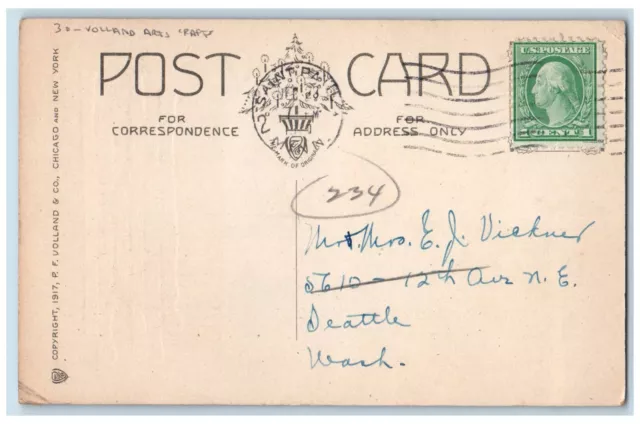 30 - VOLLAND ARTS CRAFTS
POST CARD
FOR CORRESPONDENCE
FOR ADDRESS ONLY
U.S. POSTAGE
1 CENT 1
SAINT PAUL
2
234
Mr & Mrs. E. J. Vickner
5610 - 12th Ave N. E.
Seattle
Wash.
COPYRIGHT, 1917, P. F. VOLLAND & CO., CHICAGO AND NEW YORK